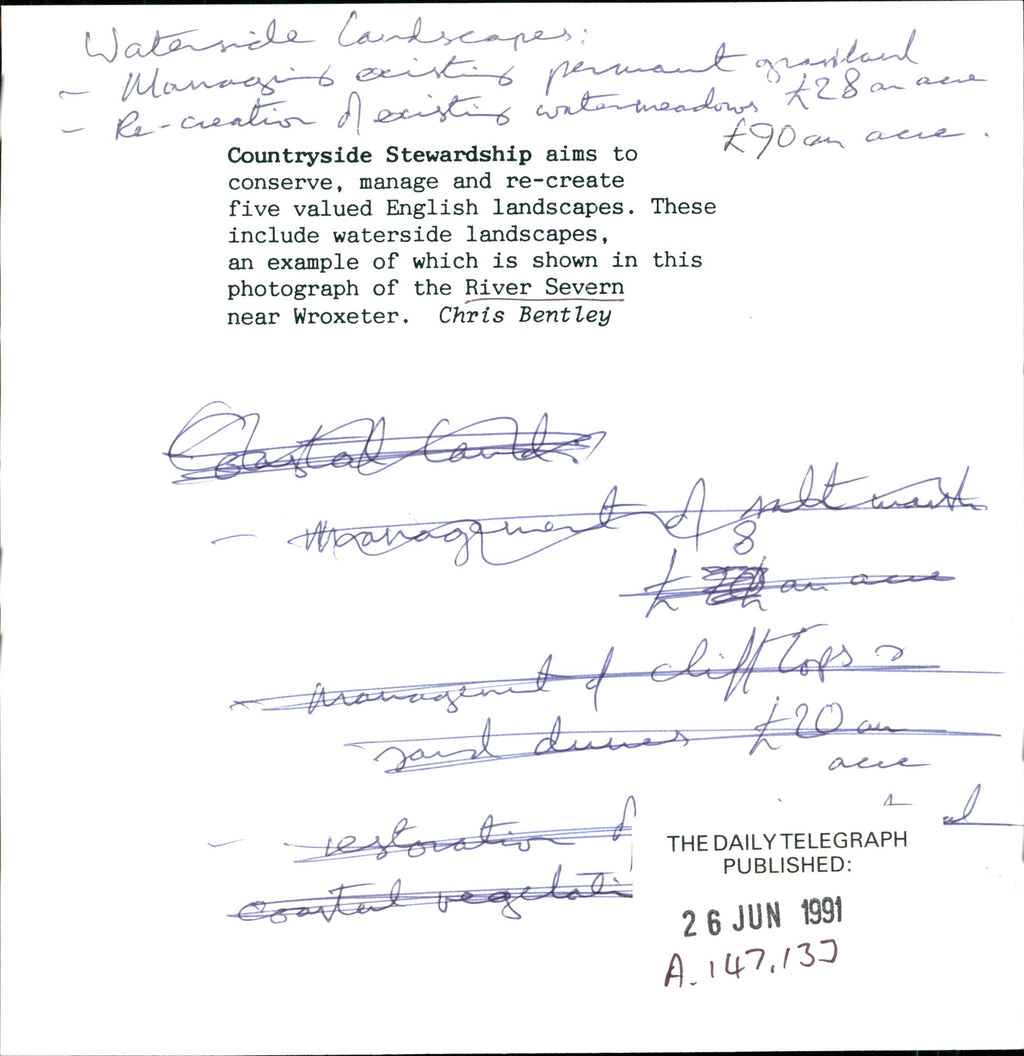 Waterside Landscapes:
- Managing existing permant grassland £28 an acre
- Re-creation of existing watermeadows £90 an acre.
Countryside Stewardship aims to
conserve, manage and re-create
five valued English landscapes. These
include waterside landscapes,
an example of which is shown in this
photograph of the River Severn
near Wroxeter. Chris Bentley
Coastal Lands
- Management of salt marsh
8
£ an acre
- Management of cliff tops &
sand dunes £20 an
acre
- restoration of
coastal vegetati
THE DAILY TELEGRAPH
PUBLISHED:
26 JUN 1991
A.147,13J